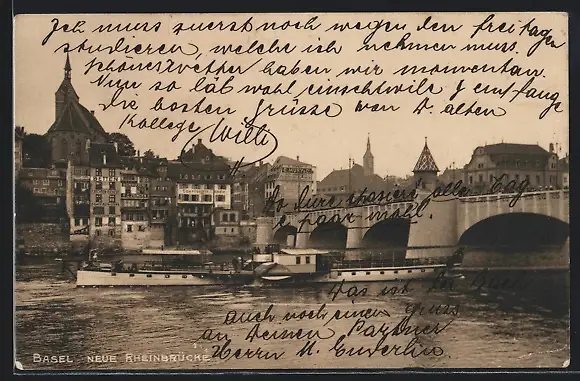 Ich muss zuerst noch wegen den freitagen
studieren, welche ich nehmen muss.
Schönes Wetter haben wir momentan.
Nun so läb wohl einschtwile & empfange
die besten Grüsse von d. alten
Kollege Willi
so dure alle Tag
es paar mahl.
Das ist der
auch noch einen Gruss
an Deinen Partner
Herrn M. Enderlin.
BASEL NEUE RHEINBRÜCKE